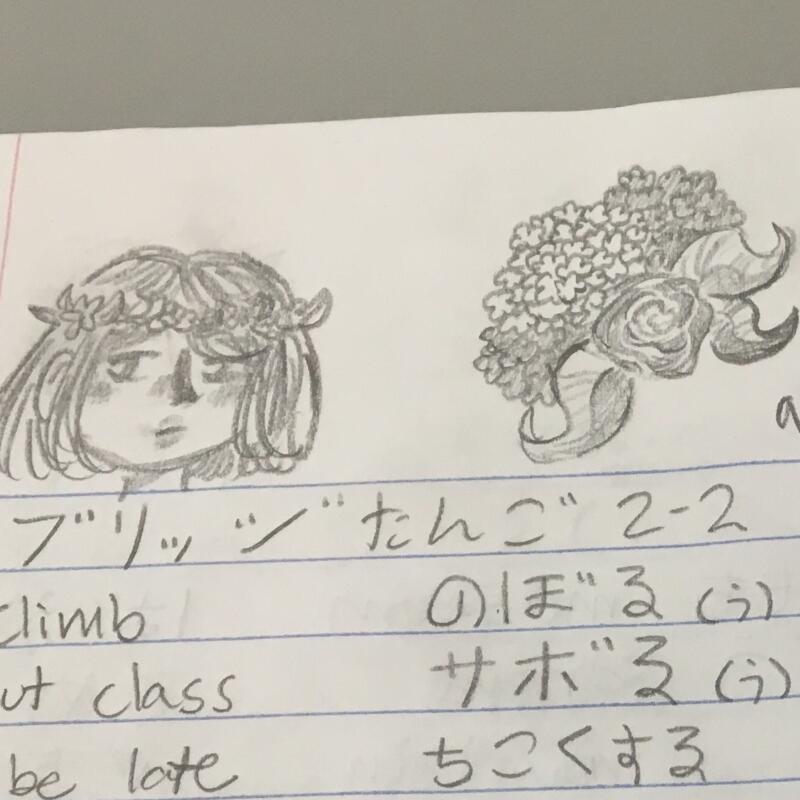 ブリッジたんご 2-2
climb のぼる (う)
ut class サボる (う)
be late ちこくする